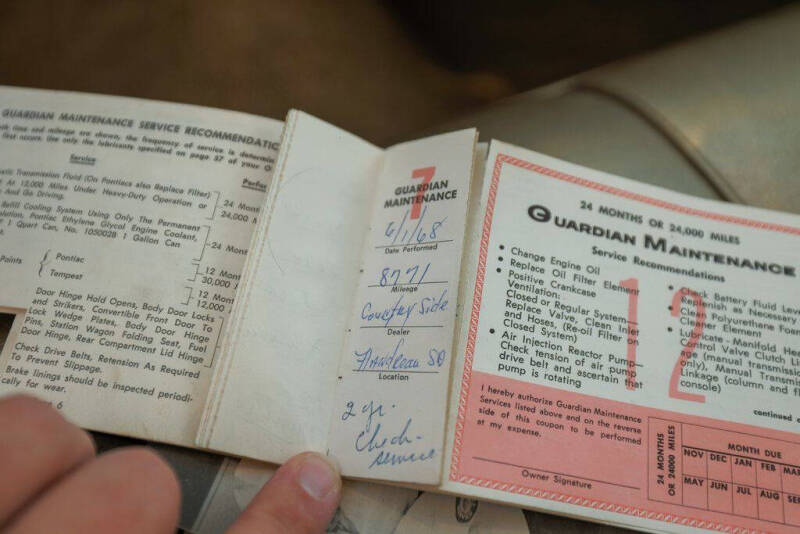 GUARDIAN MAINTENANCE SERVICE RECOMMENDATIO
th time and mileage are shown, the frequency of service is determin
first occurs. Use only the lubricants specified on page 57 of your O
Service
Perfo
atic Transmission Fluid (On Pontiacs also Replace Filter)
At 12,000 Miles Under Heavy-Duty Operation or
And Go Driving.
24 Mont
24,000
Refill Cooling System Using Only The Permanent
olution, Pontiac Ethylene Glycol Engine Coolant,
1 Quart Can, No. 1050028 1 Gallon Can
24 Mont
Points
Pontiac
Tempest
12 Mont
30,000
Door Hinge Hold Opens, Body Door Locks
and Strikers, Convertible Front Door To
Lock Wedge Plates, Body Door Hinge
Pins, Station Wagon Folding Seat, Fuel
Door Hinge, Rear Compartment Lid Hinge
12 Mont
12,000
Check Drive Belts, Retension As Required
To Prevent Slippage.
Brake linings should be inspected periodi-
cally for wear.
6
7
GUARDIAN
MAINTENANCE
6/1/68
Date Performed
8771
Mileage
Country Side
Dealer
Flandreau SD
Location
2 yr.
check-
service
24 MONTHS OR 24,000 MILES
GUARDIAN MAINTENANCE
Service Recommendations
12
• Change Engine Oil
• Replace Oil Filter Element
• Positive Crankcase
Ventilation:
Closed or Regular System—
Replace Valve, Clean Inlet
and Hoses, (Re-oil Filter on
Closed System)
• Air Injection Reactor Pump—
Check tension of air pump
drive belt and ascertain that
pump is rotating
• Check Battery Fluid Leve
Replenish as Necessary
• Clean Polyurethane Foam
Cleaner Element
• Lubricate - Manifold Hea
Control Valve Clutch Li
age (manual transmissi
only), Manual Transmi
Linkage (column and fl
console)
continued o
I hereby authorize Guardian Maintenance
Services listed above and on the reverse
side of this coupon to be performed
at my expense.
Owner Signature
24 MONTHS
OR 24000 MILES
MONTH DUE
NOV DEC JAN FEB MA
MAY JUN JUL AUG SE